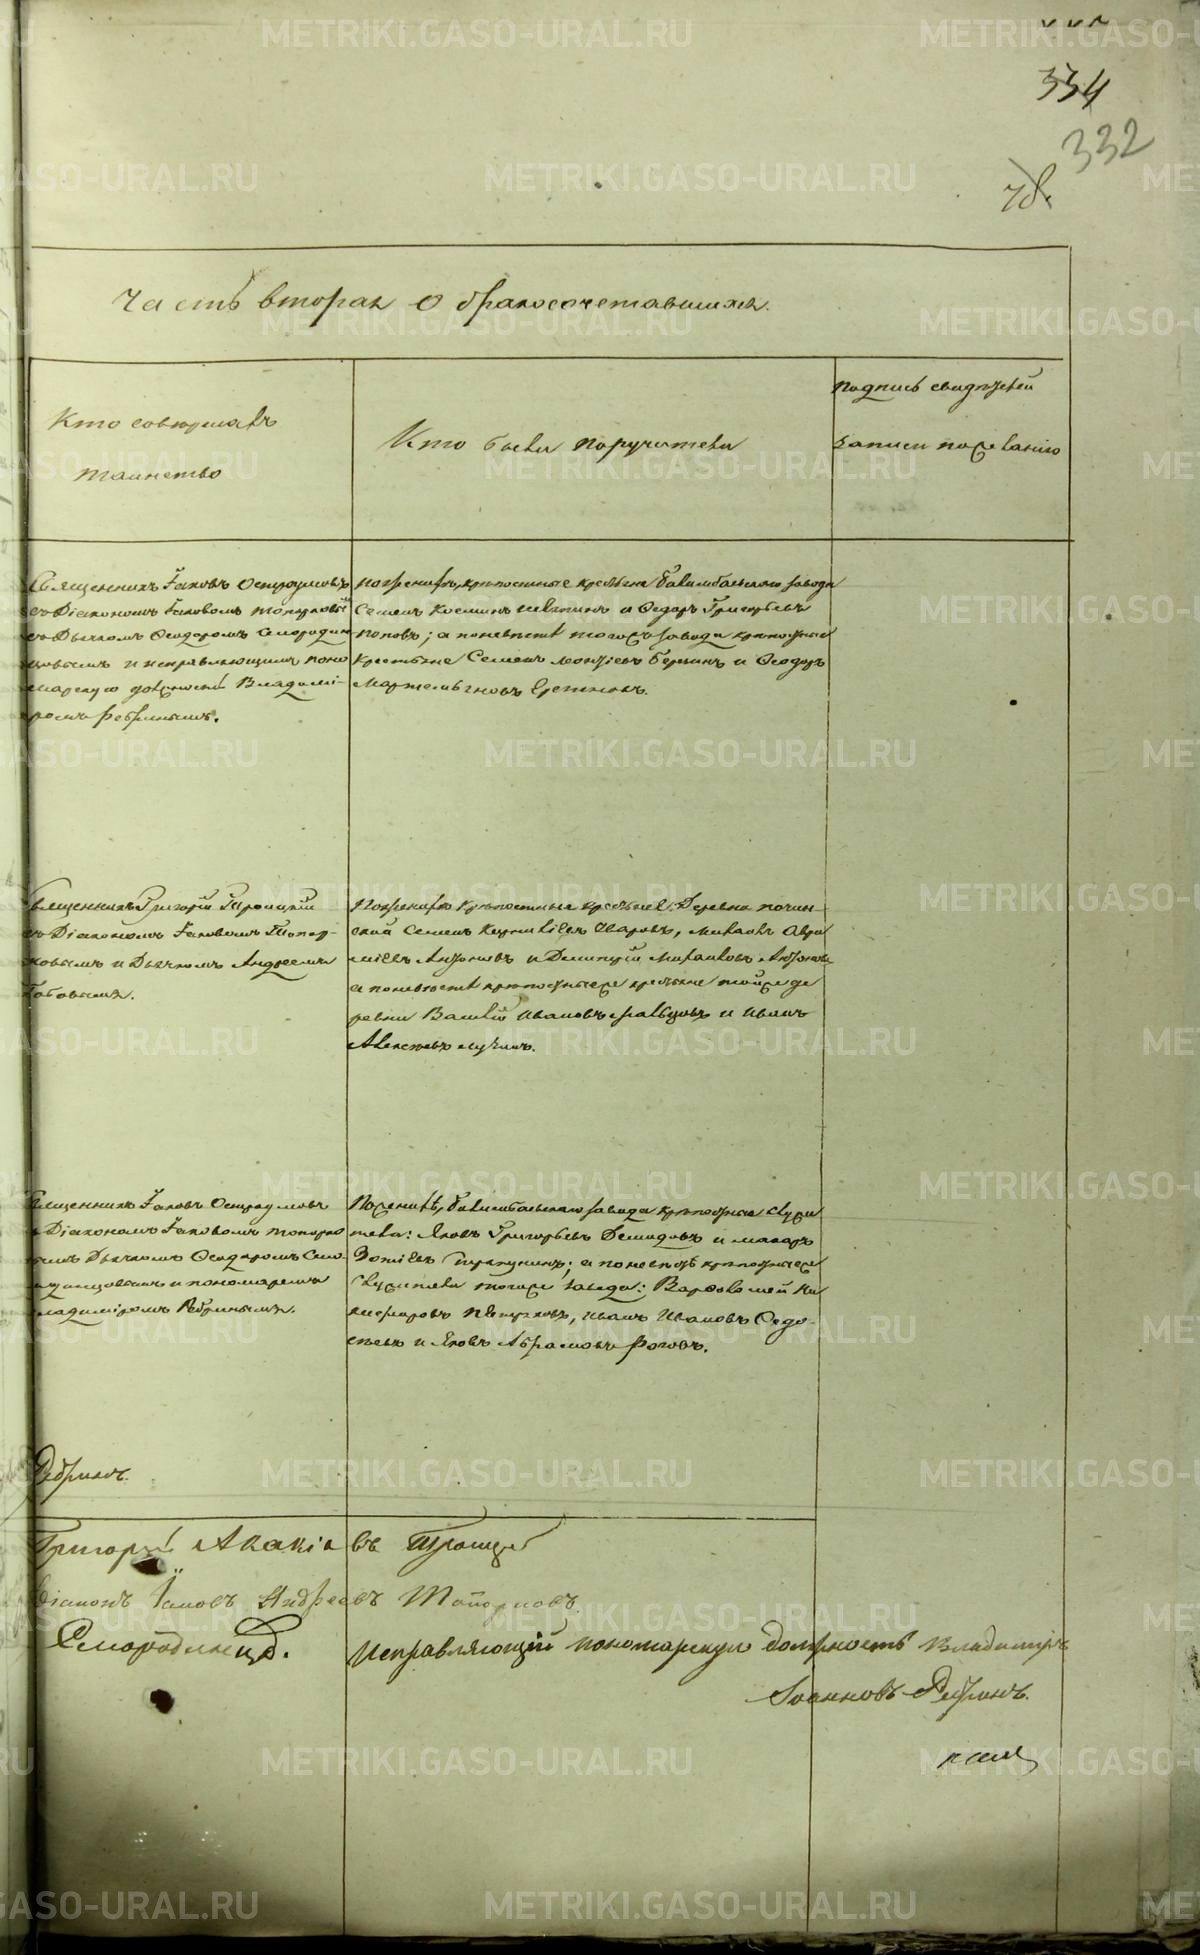 334
332
Часть вторая о бракосочетавшихся.
Кто совершалъ
таинство
Кто были поручители
Подпись свидѣтелей
записи по желанію
Священникъ Іаковъ Остроумовъ
съ Діакономъ Іаковомъ Топорковымъ
съ Дьячкомъ Ѳеодоромъ Смородин
цовымъ и исправляющимъ поно
марскую должность Владимі-
ромъ Ребринымъ.
По женихѣ, крѣпостные крестьяне Билимбаевскаго завода
Семенъ Козминъ и Ѳедоръ Григорьевъ
Поповъ; а по невѣстѣ того же завода крѣпостные
крестьяне Семенъ Леонтіевъ и Ѳеодоръ
Мартемьяновъ.
Священникъ Григорій Троицкій
съ Діакономъ Іаковомъ Топор-
ковымъ и Дьячкомъ Андреемъ
По женихѣ крѣпостные крестьяне: Деревни Починской
Семенъ Уваровъ, Михаилъ Авра
міевъ и Димитрій Михаиловъ
а по невѣстѣ крѣпостные же крестьяне той же де
ревни Василій Ивановъ и Иванъ
Алексѣевъ.
Священникъ Іаковъ Остроумовъ
съ Діакономъ Іаковомъ Топорко
вымъ Дьячкомъ Ѳеодоромъ Смо-
родинцовымъ и пономаремъ
Владиміромъ Ребринымъ.
По женихѣ, Билимбаевскаго завода крѣпостные служи
тели: Яковъ Григорьевъ Демидовъ и Макаръ
а по невѣстѣ крѣпостные же
служители того же завода: Варѳоломей Ни
кифоровъ, Иванъ Ивановъ Ѳедо-
сѣевъ и Яковъ Абрамовъ Роговъ.
Ребринъ.
Григорій Акакіевъ Троицкій
Діаконъ Іаковъ Андреевъ Топорковъ
Смородинцовъ.
Исправляющій пономарскую должность Владиміръ
Іоанновъ Ребринъ.
METRIKI.GASO-URAL.RU